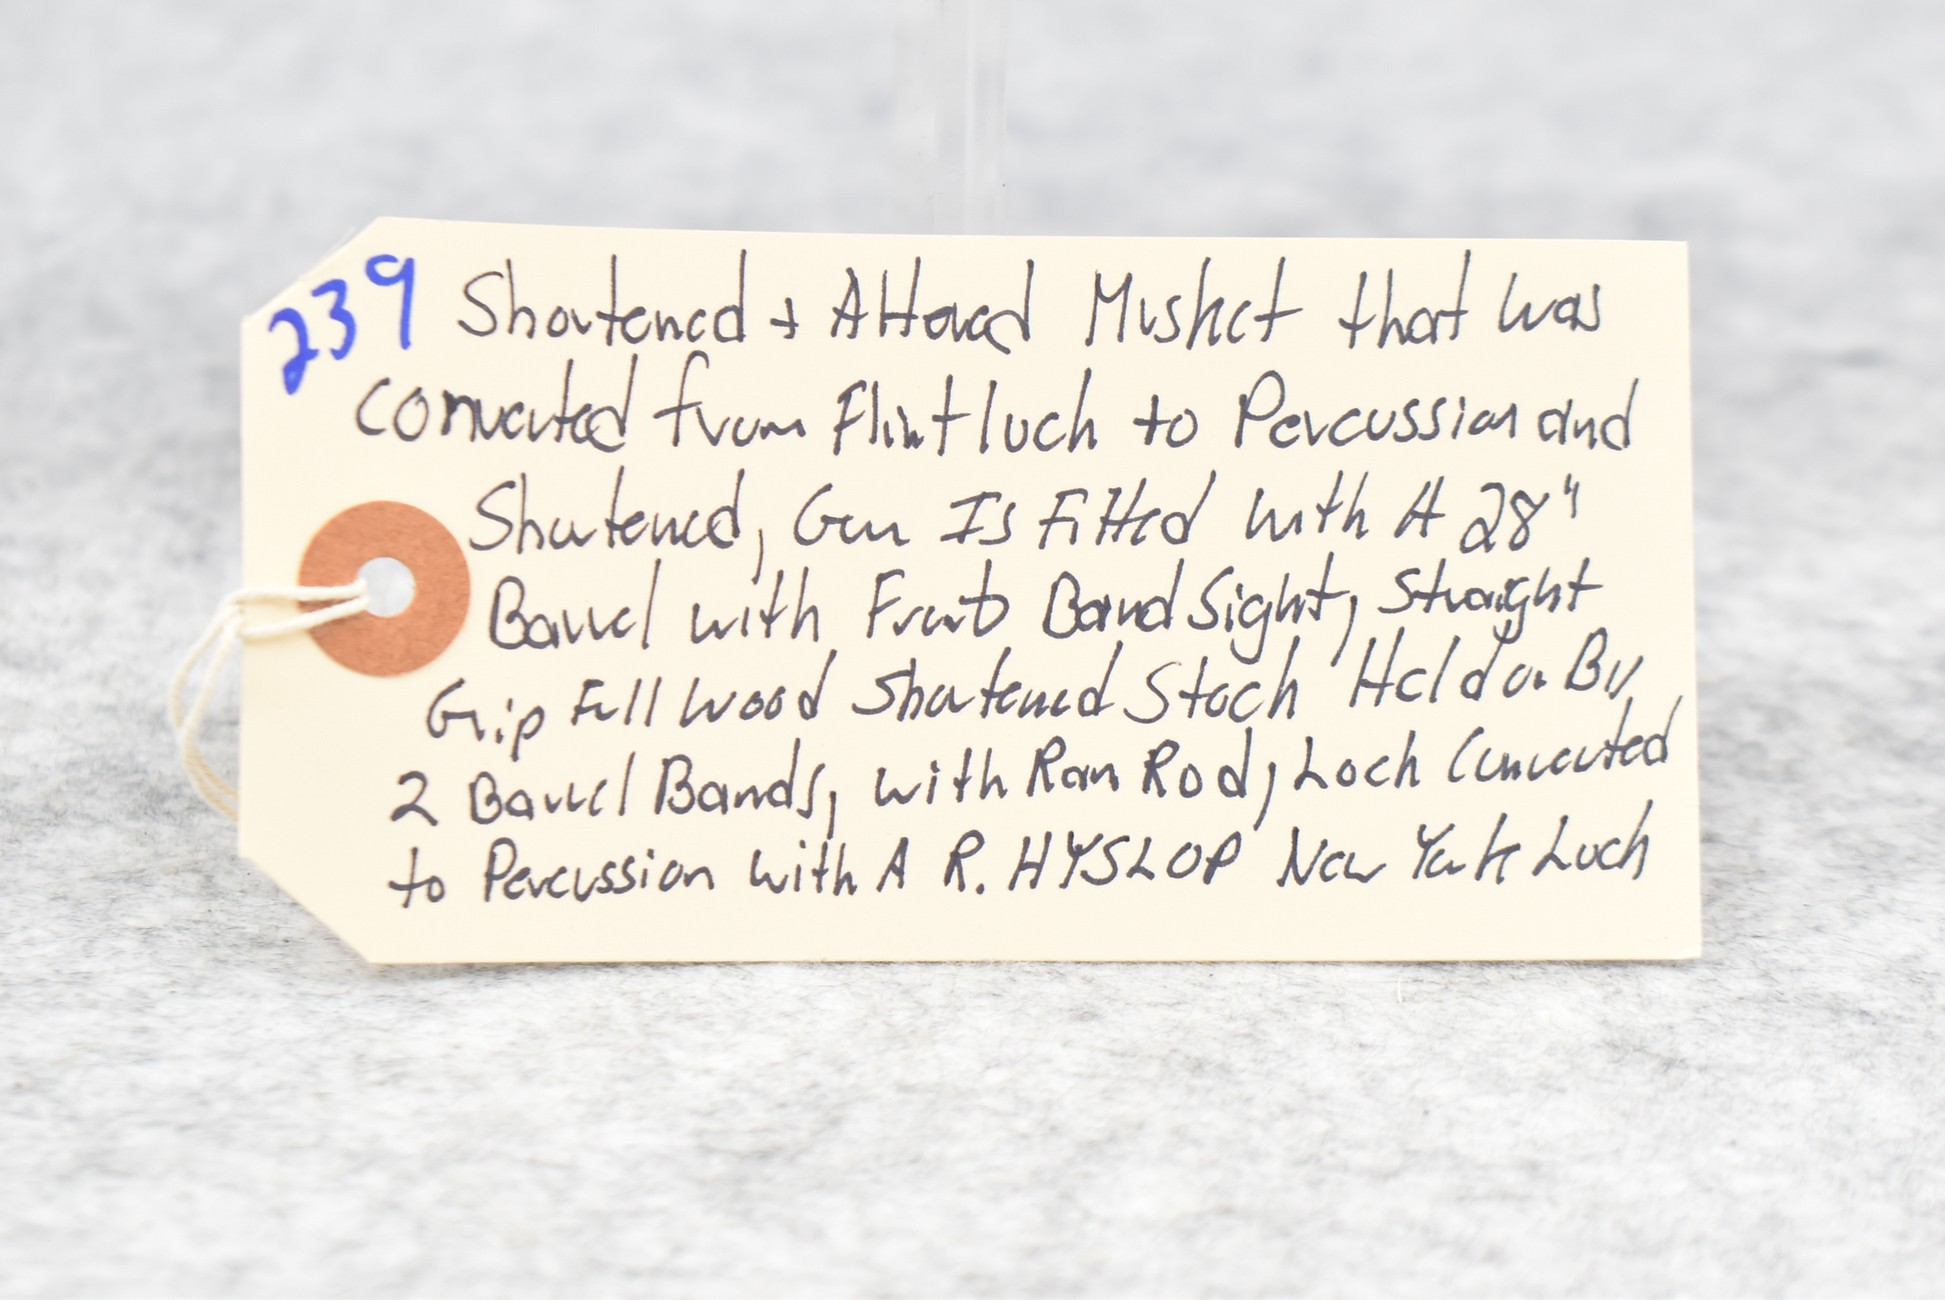 239 Shortened + Altered Musket that was
converted from Flintlock to Percussion and
Shortened, Gun Is Fitted with A 28"
Barrel with Front Band Sight, Straight
Grip Full Wood Shortened Stock Held on By
2 Barrel Bands, with Ram Rod, Lock Converted
to Percussion with A R. HYSLOP New York Lock